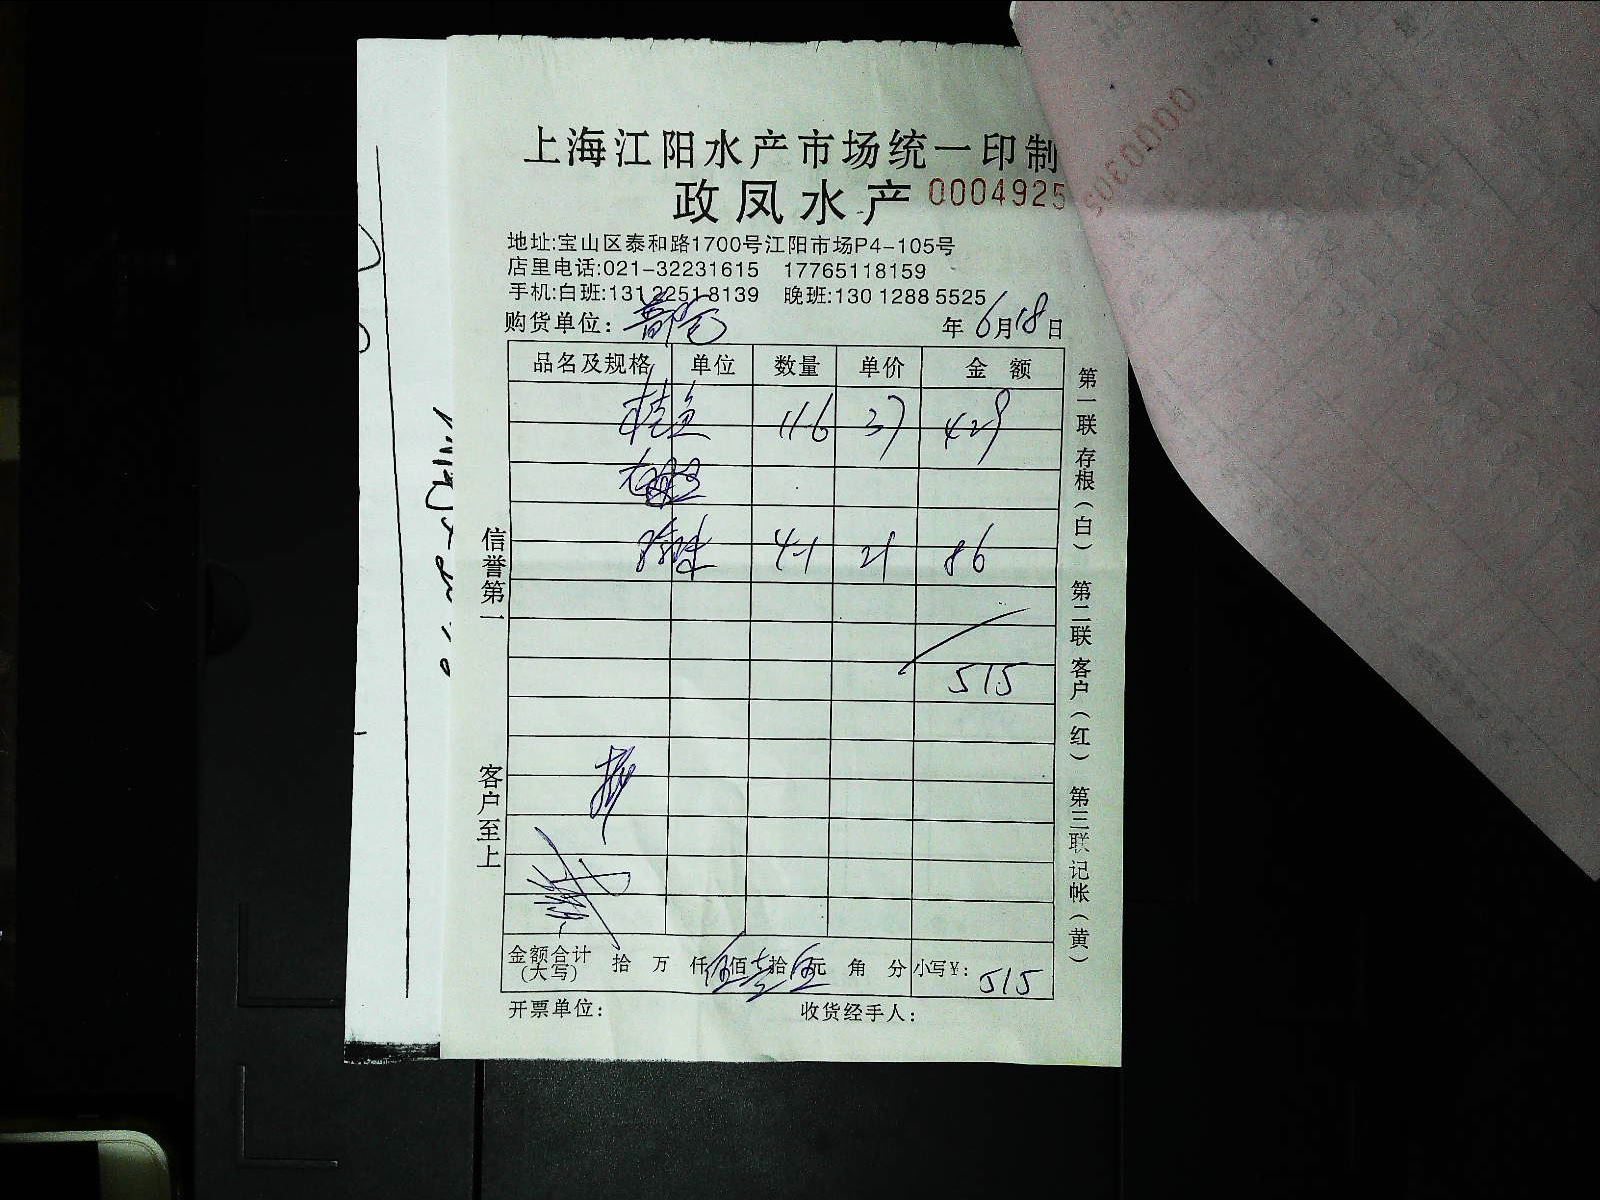 上海江阳水产市场统一印制
政凤水产 0004925
地址:宝山区泰和路1700号江阳市场P4-105号
店里电话:021-32231615 17765118159
手机:白班:131 2251 8139 晚班:130 1288 5525
购货单位: 年6月18日
品名及规格 单位 数量 单价 金额
桂鱼 11.6 37 429
4.1 21 86
515
金额合计(大写) 拾 万 仟伍佰壹拾伍元 角 分 小写¥: 515
开票单位: 收货经手人:
信誉第一
客户至上
第一联存根(白) 第二联客户(红) 第三联记帐(黄)
0000305